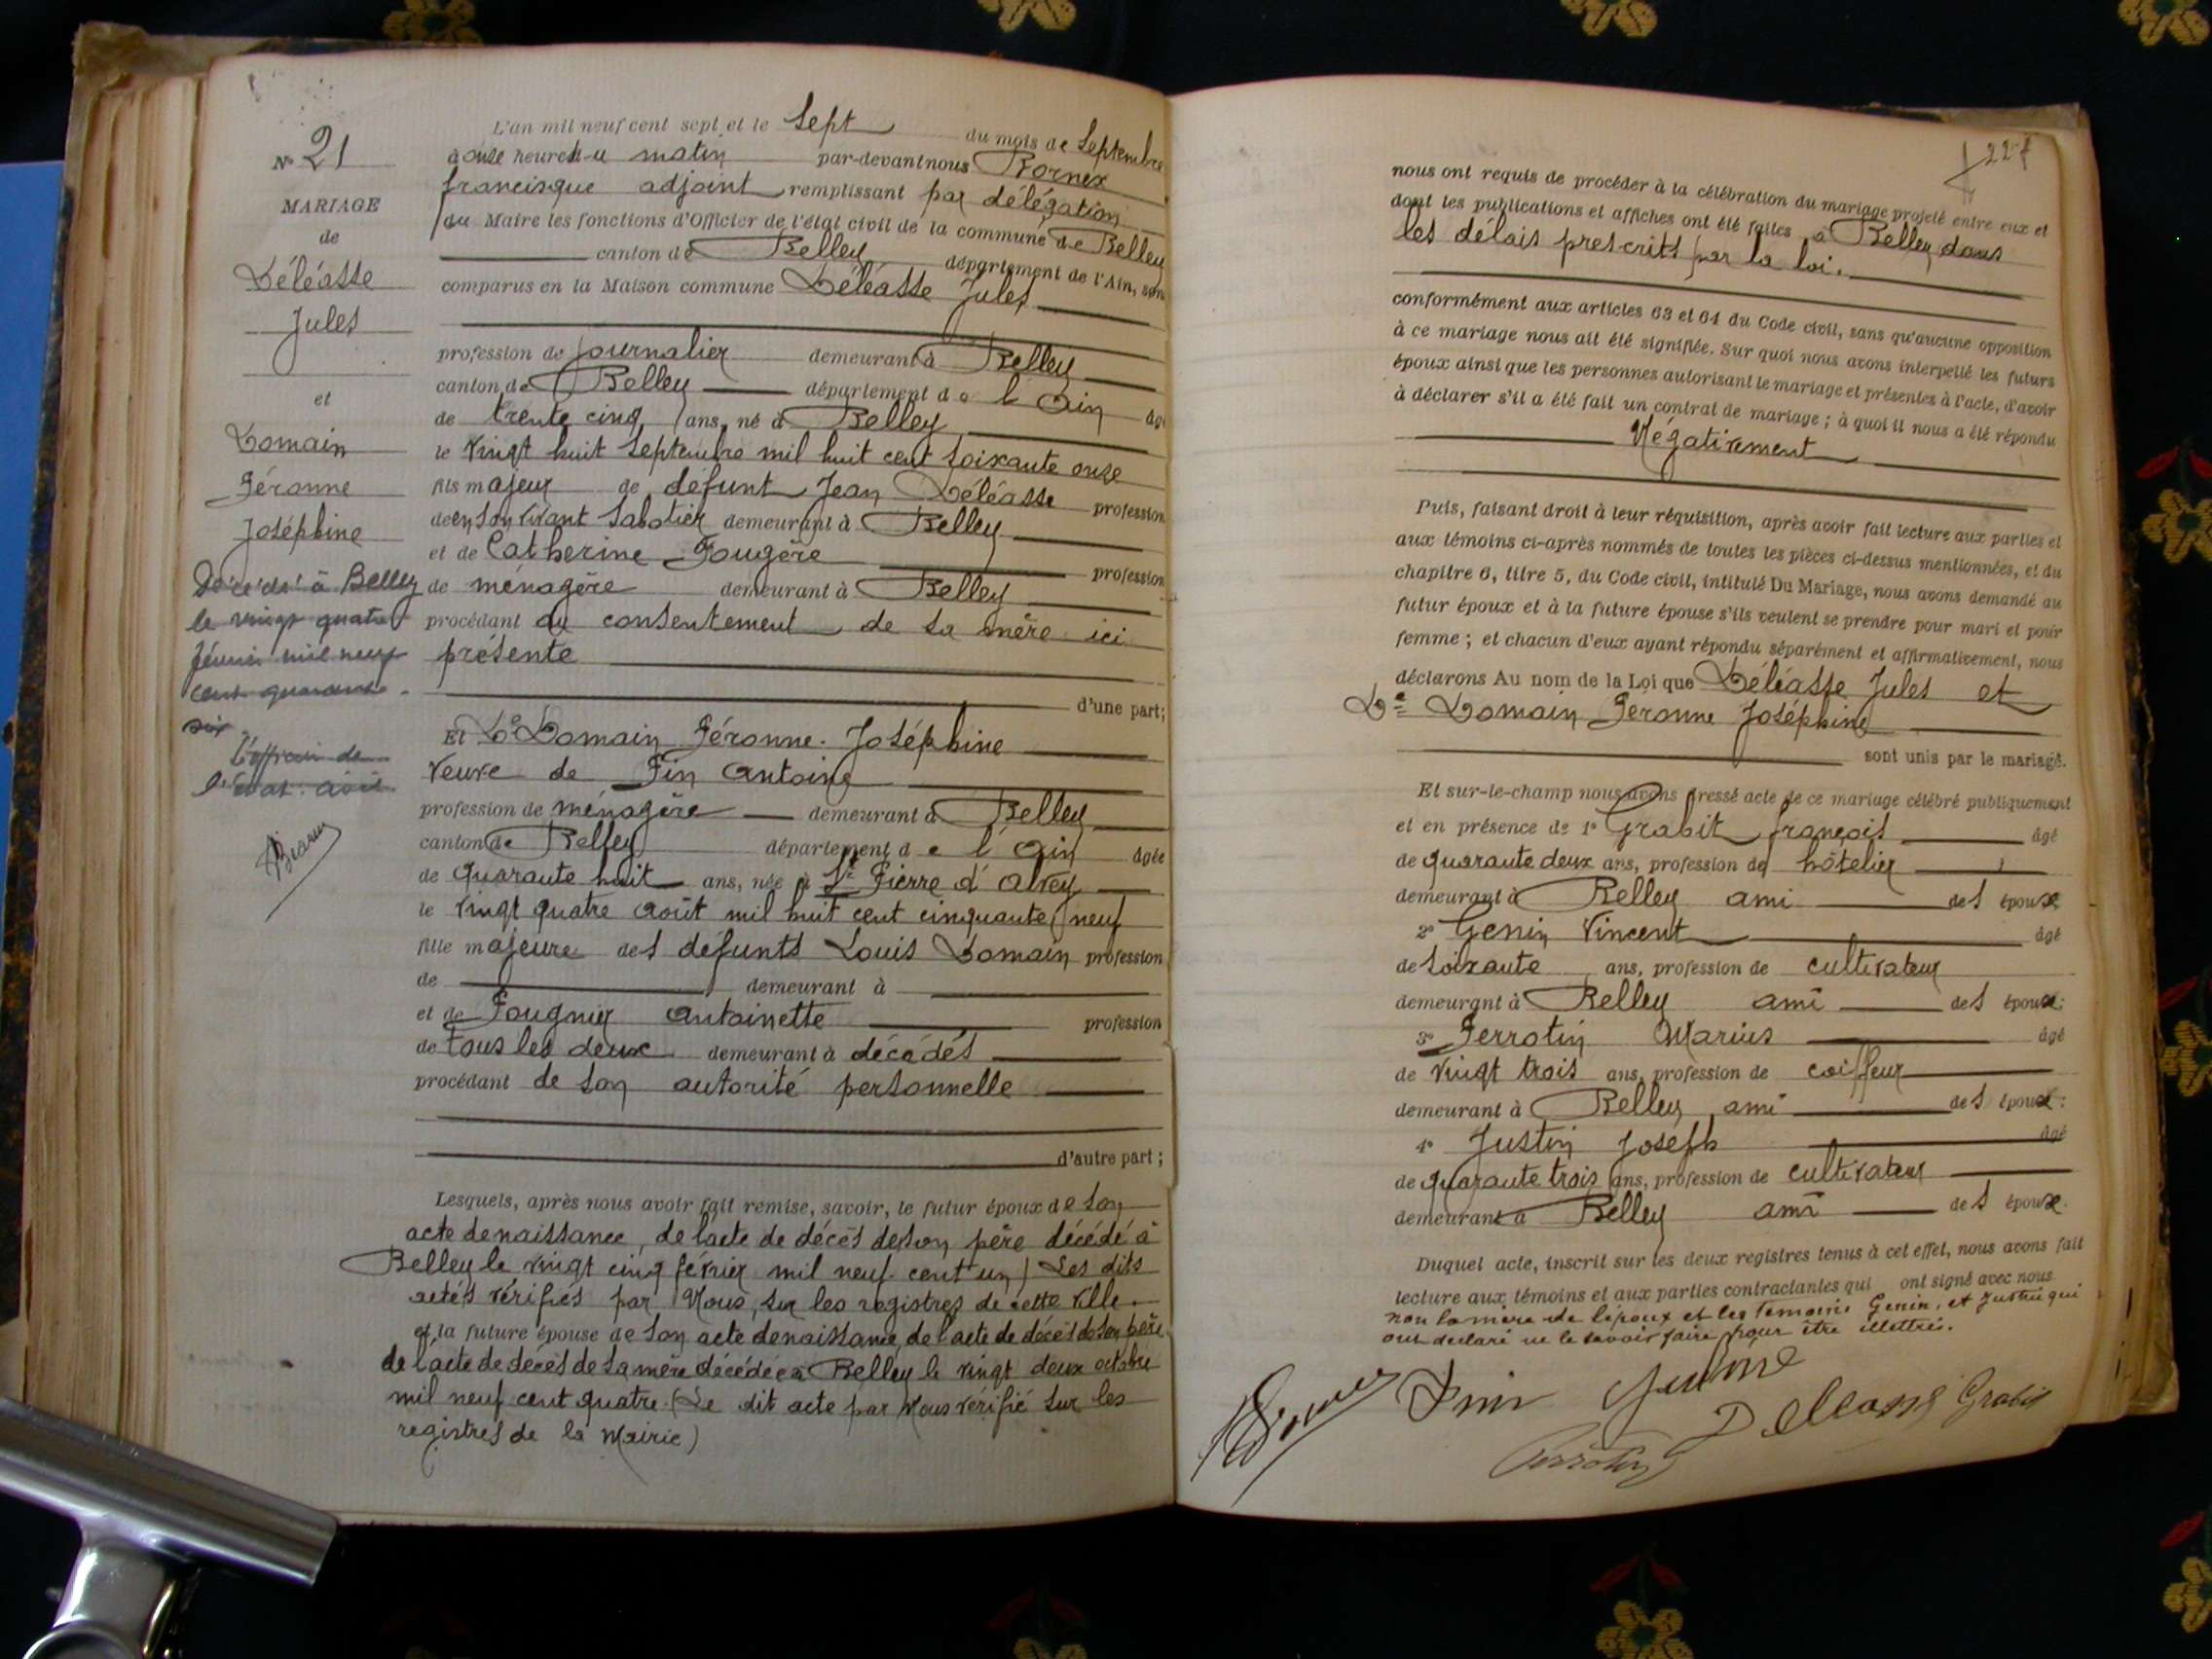 N° 21
MARIAGE
de
Déléasse
Jules
et
Domain
Péronne
Joséphine
Décédé à Belley
le vingt quatre
février mil neuf
cent quarante
six
L'officier de
l'état-civil
L'an mil neuf cent sept et le Sept du mois de Septembre
à onze heures du matin par-devant nous Bornex
francisque adjoint remplissant par délégation
du Maire les fonctions d'Officier de l'état civil de la commune de Belley
canton de Belley département de l'Ain, sont
comparus en la Maison commune Déléasse Jules
profession de journalier demeurant à Belley
canton de Belley département de l'Ain âgé
de trente cinq ans, né à Belley
le vingt huit Septembre mil huit cent soixante onze
fils majeur de défunt Jean Déléasse profession
de en son vivant Sabotier demeurant à Belley
et de Catherine Fougère profession
de ménagère demeurant à Belley
procédant du consentement de sa mère ici
présente
d'une part;
Et De Domain Péronne Joséphine
veuve de Pin Antoine
profession de ménagère demeurant à Belley
canton de Belley département de l'Ain âgée
de quarante huit ans, née à St Pierre d'Alvey
le vingt quatre août mil huit cent cinquante neuf
fille majeure des défunts Louis Domain profession
de demeurant à
et de Fougnier Antoinette profession
de tous les deux demeurant à décédés
procédant de son autorité personnelle
d'autre part;
Lesquels, après nous avoir fait remise, savoir, le futur époux de son
acte de naissance, de l'acte de décès de son père décédé à
Belley le vingt cinq février mil neuf cent un) Les dits
actes vérifiés par Nous, sur les registres de cette ville.
et la future épouse de son acte de naissance, de l'acte de décès de son père
de l'acte de décès de sa mère décédée à Belley le vingt deux octobre
mil neuf cent quatre. (Le dit acte par Nous vérifié sur les
registres de la Mairie)
227
nous ont requis de procéder à la célébration du mariage projeté entre eux et
dont les publications et affiches ont été faites à Belley dans
les délais prescrits par la loi.
conformément aux articles 63 et 64 du Code civil, sans qu'aucune opposition
à ce mariage nous ait été signifiée. Sur quoi nous avons interpellé les futurs
époux ainsi que les personnes autorisant le mariage et présentes à l'acte, d'avoir
à déclarer s'il a été fait un contrat de mariage; à quoi il nous a été répondu
Négativement
Puis, faisant droit à leur réquisition, après avoir fait lecture aux parties et
aux témoins ci-après nommés de toutes les pièces ci-dessus mentionnées, et du
chapitre 6, titre 5, du Code civil, intitulé Du Mariage, nous avons demandé au
futur époux et à la future épouse s'ils veulent se prendre pour mari et pour
femme; et chacun d'eux ayant répondu séparément et affirmativement, nous
déclarons Au nom de la Loi que Déléasse Jules et
De Domain Péronne Joséphine
sont unis par le mariage.
Et sur-le-champ nous avons dressé acte de ce mariage célébré publiquement
et en présence de 1° Grabit françois âgé
de quarante deux ans, profession de hôtelier
demeurant à Belley ami des époux
2° Genin Vincent âgé
de soixante ans, profession de cultivateur
demeurant à Belley ami des époux:
3° Perrotin Marius âgé
de vingt trois ans, profession de coiffeur
demeurant à Belley ami des époux:
4° Justin Joseph âgé
de quarante trois ans, profession de cultivateur
demeurant à Belley ami des époux.
Duquel acte, inscrit sur les deux registres tenus à cet effet, nous avons fait
lecture aux témoins et aux parties contractantes qui ont signé avec nous
non la mère de l'époux et les témoins Genin, et Justin qui
ont déclaré ne le savoir faire pour être illettrés.
Déléasse Grabit
Perrotin